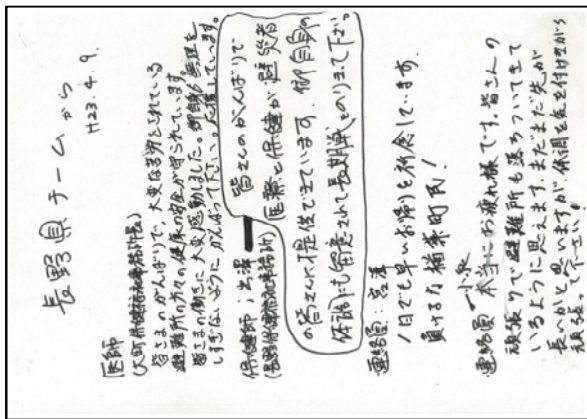 長野県チームから
H23.4.9.
医師
(大町保健福祉事務所長)
皆さまのがんばりで、大変な苦労をされている
避難所の方々の健康の安全が守られています。
皆さまの働きに、大変感動しました。御無理を
しすぎないように がんばって下さい。応援しています。
保健師;出澤
(長野保健福祉事務所)
皆さんのがんばりで
医療と保健が避災者
の皆さんに提供できています。御自身の
体調にも留意されて長期戦をのりきって下さい
連絡員:宮澤
1日でも早いお帰りを祈念しています。
負けるな 楢葉町民!
連絡員 小泉
本当にお疲れ様です。皆さんの
頑張りで避難所も落ちついてきて
いるように思えます。まだまだ先が
長いかと思いますが、体調に気を付けながら
頑張って下さい。